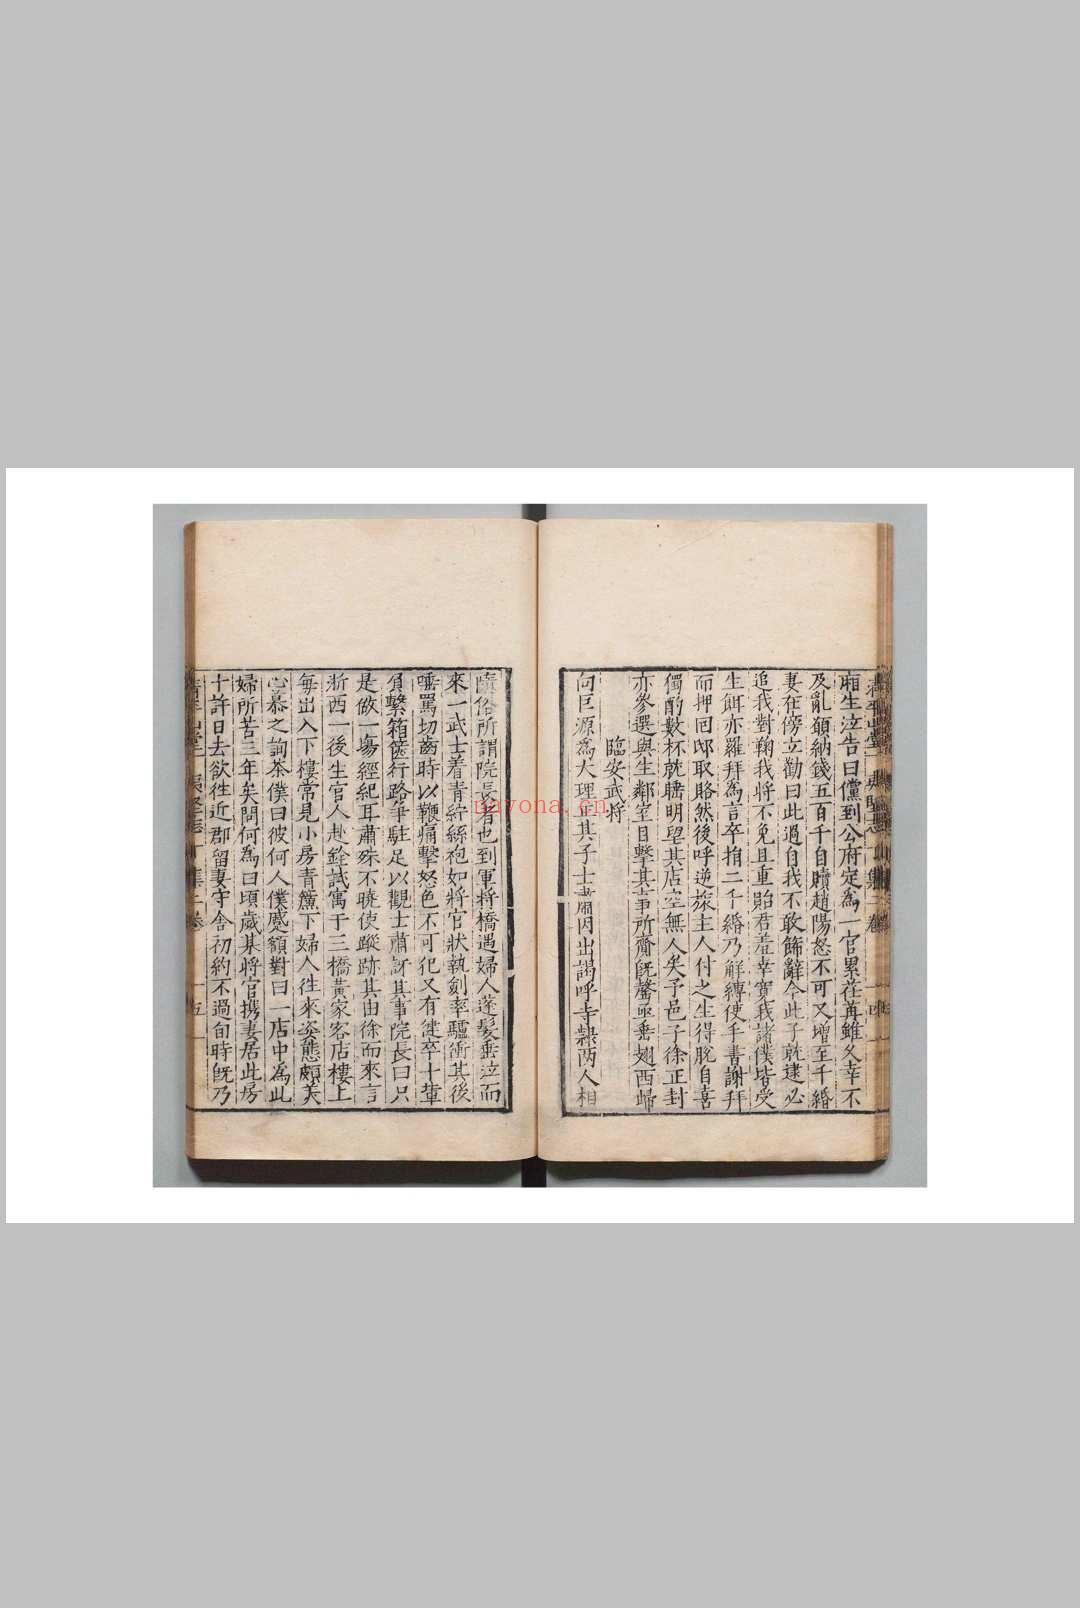 廂生泣告曰儻到公府定為一官累荏苒雖久幸不
及亂願納錢五百千自贖趙陽怒不可又增至千緡
妻在傍立勸曰此過自我不敢飾辭今此子就逮必
追我對鞫我將不免且重貽君羞幸寬我諸僕皆受
生餌亦羅拜為言卒捐二千緡乃解縛使手書謝拜
而押回邸取賂然後呼逆旅主人付之生得脫自喜
獨酌數杯就睡明望其店空無人矣予邑子徐正封
亦參選與生鄰室目擊其事所齎既罄亟垂翅西歸
臨安武将
向巨源為大理正其子士肅因出謁呼寺隸两人相
隨俗所謂院長者也到軍将橋遇婦人蓬髮垂泣而
來一武士着青紵絲袍如將官狀執劍牽驢衝其後
唾罵切齒時以鞭痛擊怒色不可犯又有健卒十輩
負繫箱篋行路爭駐足以觀士肅訝其事院長曰只
是做一塲經紀耳肅殊不曉使蹤跡其由徐而來言
浙西一後生官人赴銓試寓于三橋黃家客店樓上
每出入下樓常見小房青簾下婦人往來姿態頗美
心慕之詢茶僕曰彼何人僕蹙額對曰一店中為此
婦所苦三年矣問何為曰頃歲某将官携妻居此房
十許日去欲往近郡留妻守舍初約不過旬時既乃
清平山堂 夷堅志 集 卷 五
navona.cn